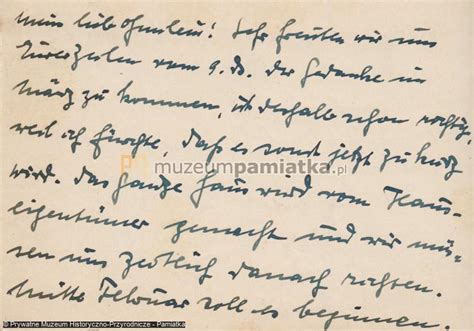 mein liebes Ohmlein! Sehr freuten wir uns
Eurer Zeilen vom 9. ds. der Gedanke im
März zu kommen, ist deshalb schon richtig,
weil ich fürchte, daß es sonst jetzt zu kurz
wird. das ganze Haus wird vom Haus-
eigentümer gemacht und wir müs-
sen uns zeitlich danach richten.
mitte Februar soll es beginnen.
muzeumpamiatka.pl
© Prywatne Muzeum Historyczno-Przyrodnicze - Pamiatka